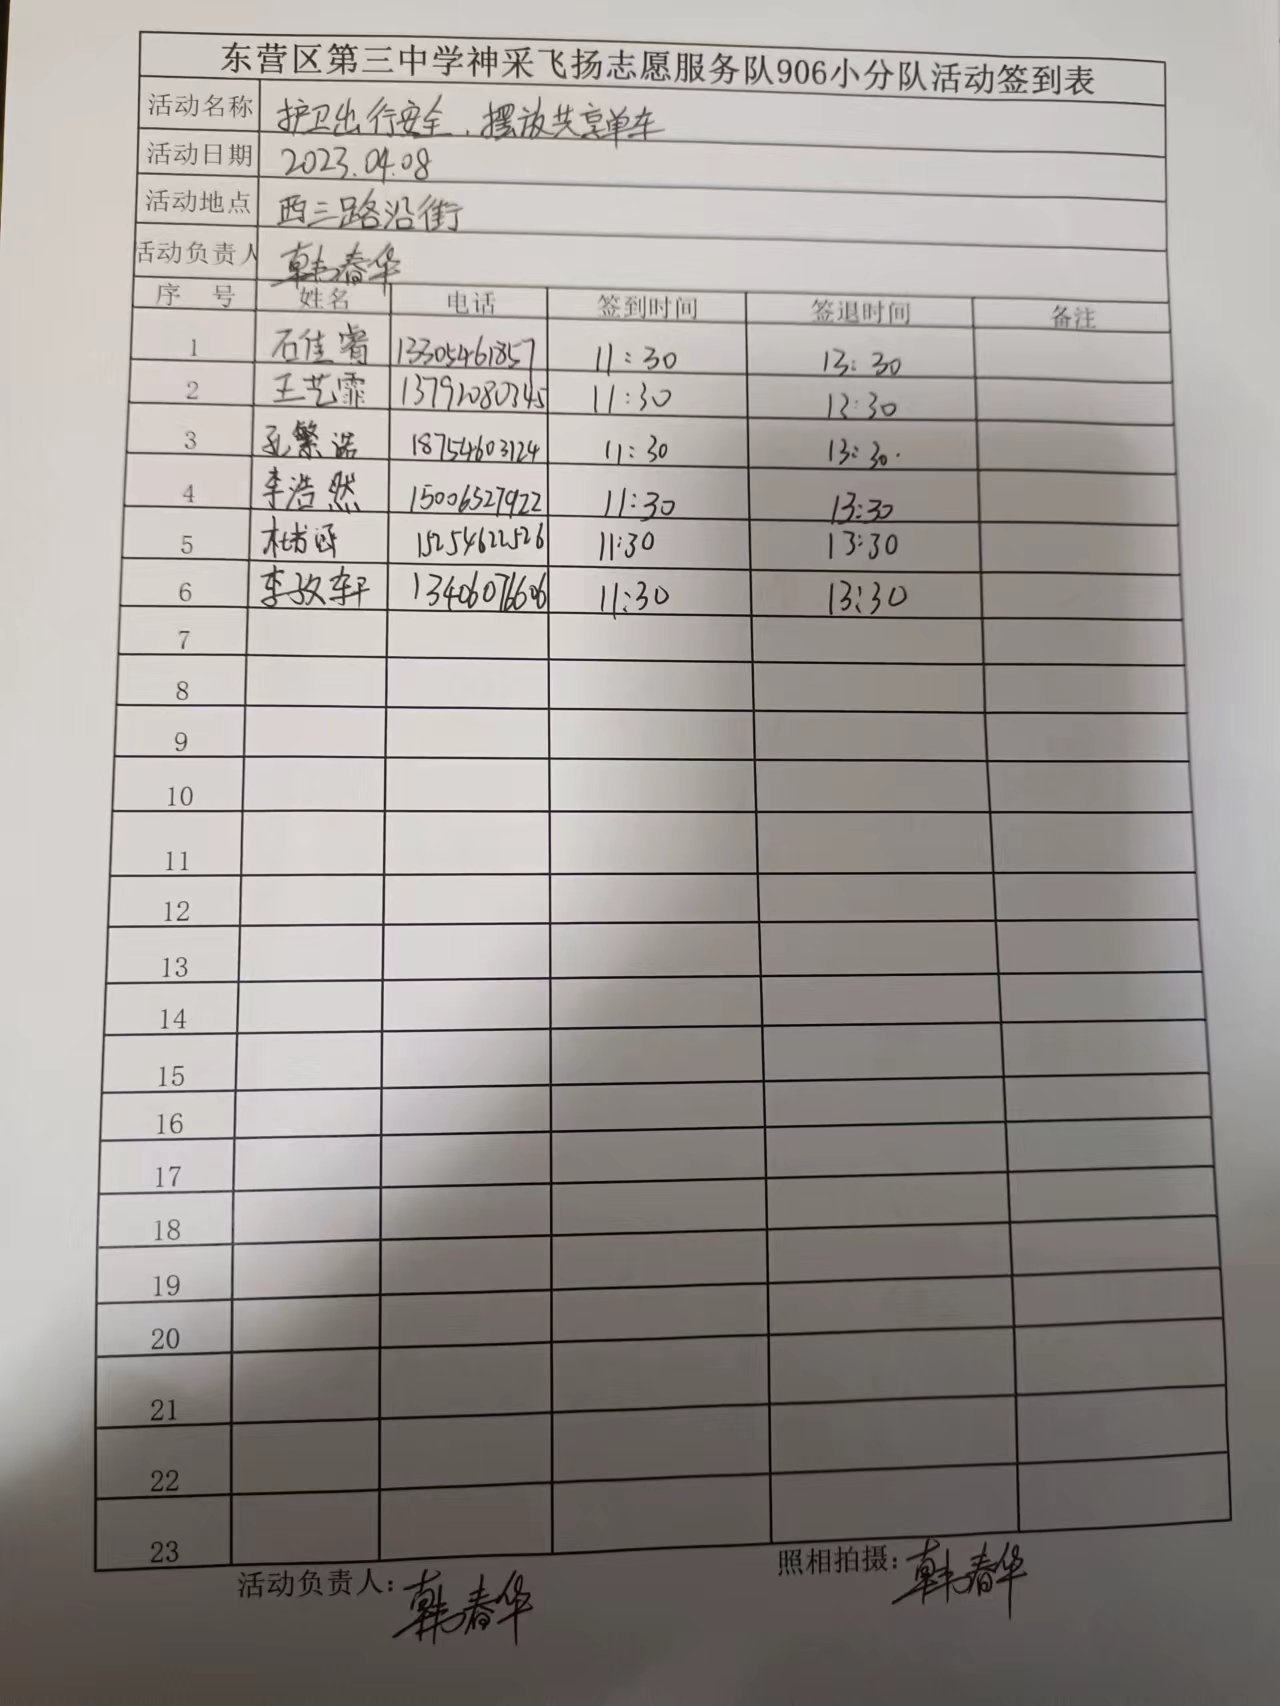 东营区第三中学神采飞扬志愿服务队906小分队活动签到表
活动名称 护卫出行安全、摆放共享单车
活动日期 2023.04.08
活动地点 西三路沿街
活动负责人 韩春华
序 号 姓名 电话 签到时间 签退时间 备注
1 石佳睿 13305461857 11:30 13:30
2 王艺霏 13792080345 11:30 13:30
3 孔繁诺 18754603124 11:30 13:30.
4 李浩然 15006527922 11:30 13:30
5 15254622526 11:30 13:30
6 李玟轩 13406076606 11:30 13:30
7
8
9
10
11
12
13
14
15
16
17
18
19
20
21
22
23
活动负责人: 韩春华 照相拍摄: 韩春华